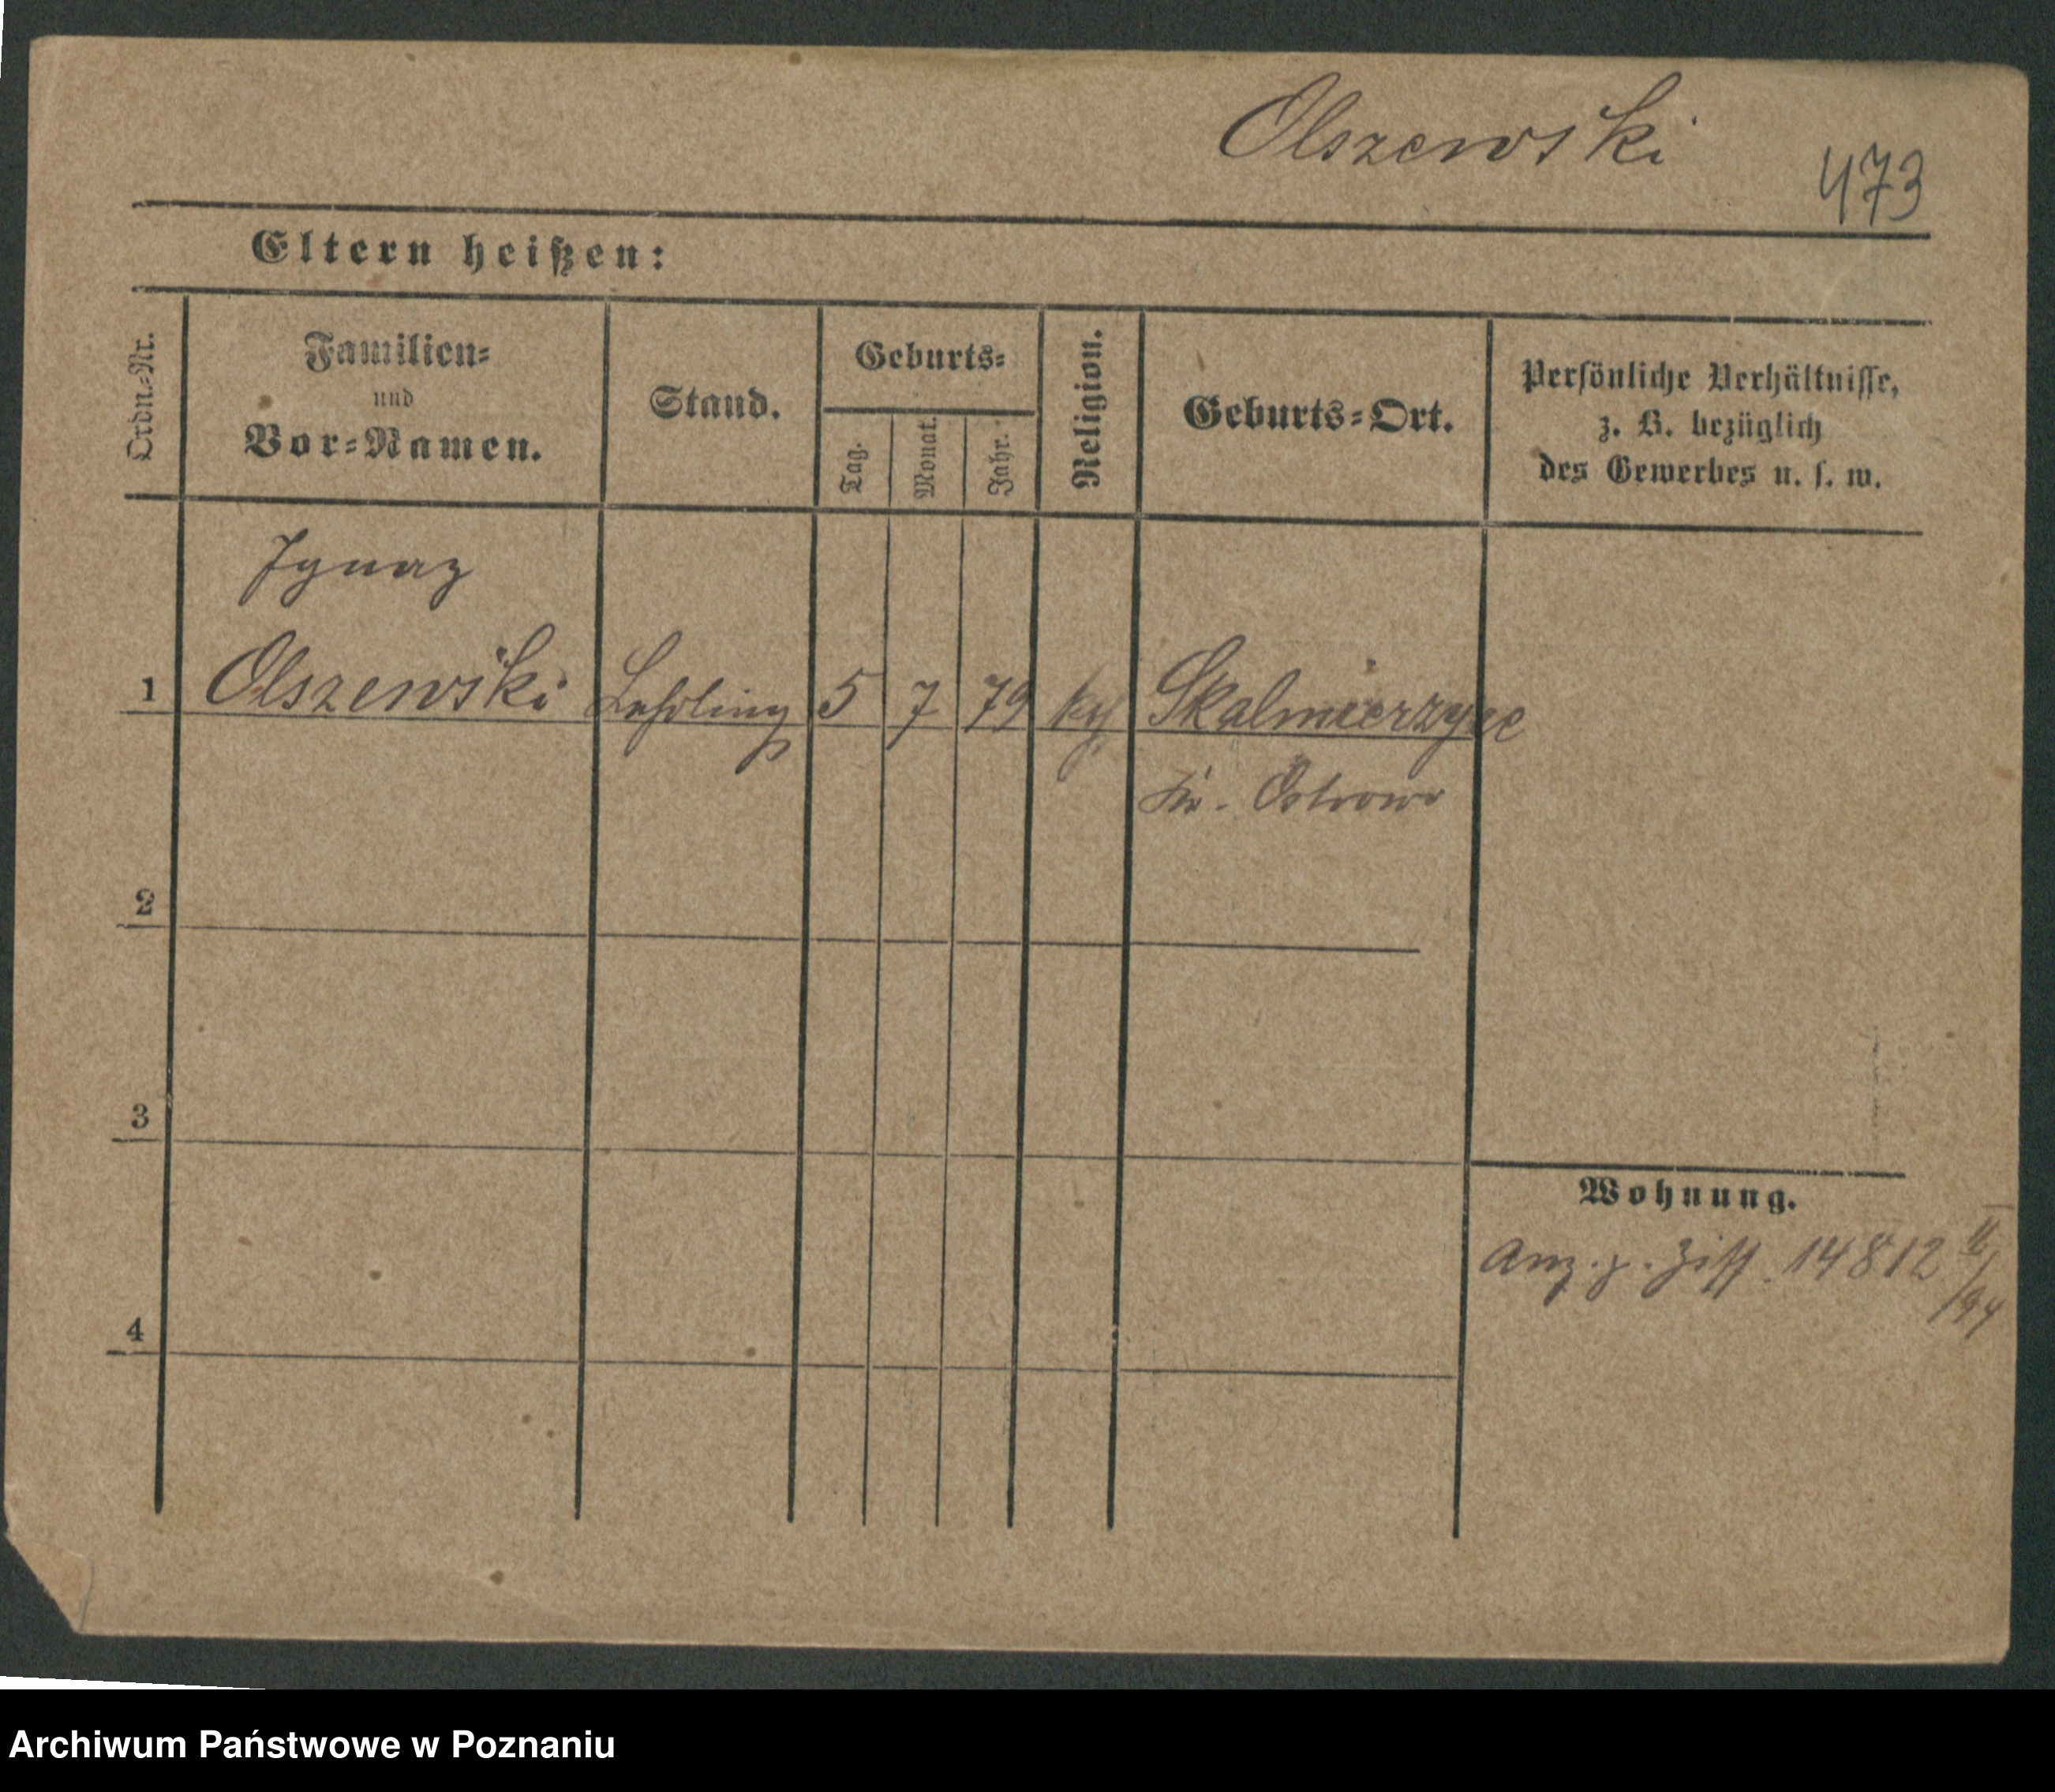 Olszewski
473
Eltern heißen:
Ordn.-Nr.
Familien-
und
Vor-Namen.
Stand.
Geburts-
Tag.
Monat.
Jahr.
Religion.
Geburts-Ort.
Persönliche Verhältnisse,
z. B. bezüglich
des Gewerbes u. s. w.
Ignaz
1 Olszewski Lehrling 5 7 79 Skalmierzyce
Kr. Ostrowo
2
3
Wohnung.
Anz. z. Ziff. 14812 II/94
4
Archiwum Państwowe w Poznaniu